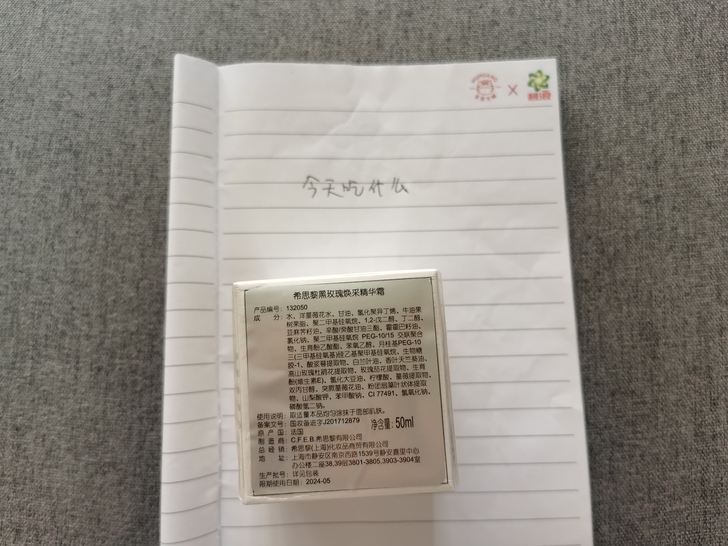 今天吃什么
希思黎黑玫瑰焕采精华霜
产品编号：132050
成　分：水、洋蔷薇花水、甘油、氢化聚异丁烯、牛油果
树果脂、聚二甲基硅氧烷、1,2-戊二醇、丁二醇、
亚麻荠籽油、辛酸/癸酸甘油三酯、霍霍巴籽油、
氯化钠、聚二甲基硅氧烷 PEG-10/15 交联聚合
物、生育酚乙酸酯、苯氧乙醇、月桂基PEG-10
三(三甲基硅氧基)硅乙基聚甲基硅氧烷、生物糖
胶-1、酸浆萼提取物、白兰叶油、香叶天竺葵油、
高山玫瑰杜鹃花提取物、玫瑰茄花提取物、生育
酚(维生素E)、氢化大豆油、柠檬酸、蔷薇提取物、
双丙甘醇、突厥蔷薇花油、粉团扇藻叶状体提取
物、山梨酸钾、苯甲酸钠、CI 77491、氢氧化钠、
磷酸氢二钠。
使用说明：取适量本品均匀涂抹于面部肌肤。
备案文号：国妆备进字J201712879
净含量：50ml
原 产 国：法国
制 造 商：C.F.E.B.希思黎有限公司
总 经 销：希思黎(上海)化妆品商贸有限公司
地　址：上海市静安区南京西路1539号静安嘉里中心
办公楼二座38,39层3801-3805,3903-3904室
生产批号：详见包装
限期使用日期：2024-05